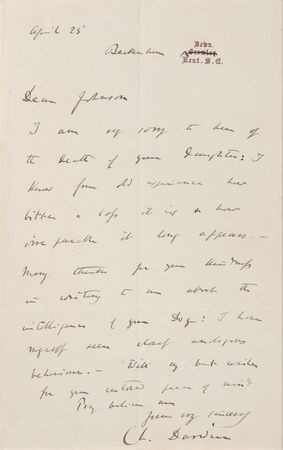 April 25
Down,
Bromley
Kent. S.E.
Beckenham
Dear Johnson
I am very sorry to hear of
the death of your Daughter: I
know from old experience how
bitter a loss it is & how
irreparable it long appears. —
Many thanks for your kindness
in writing to me about the
intelligence of your Dog: I have
myself seen closely analogous
behaviour. — With my best wishes
for your restored peace of mind
Pray believe me
yours very sincerely
Ch. Darwin